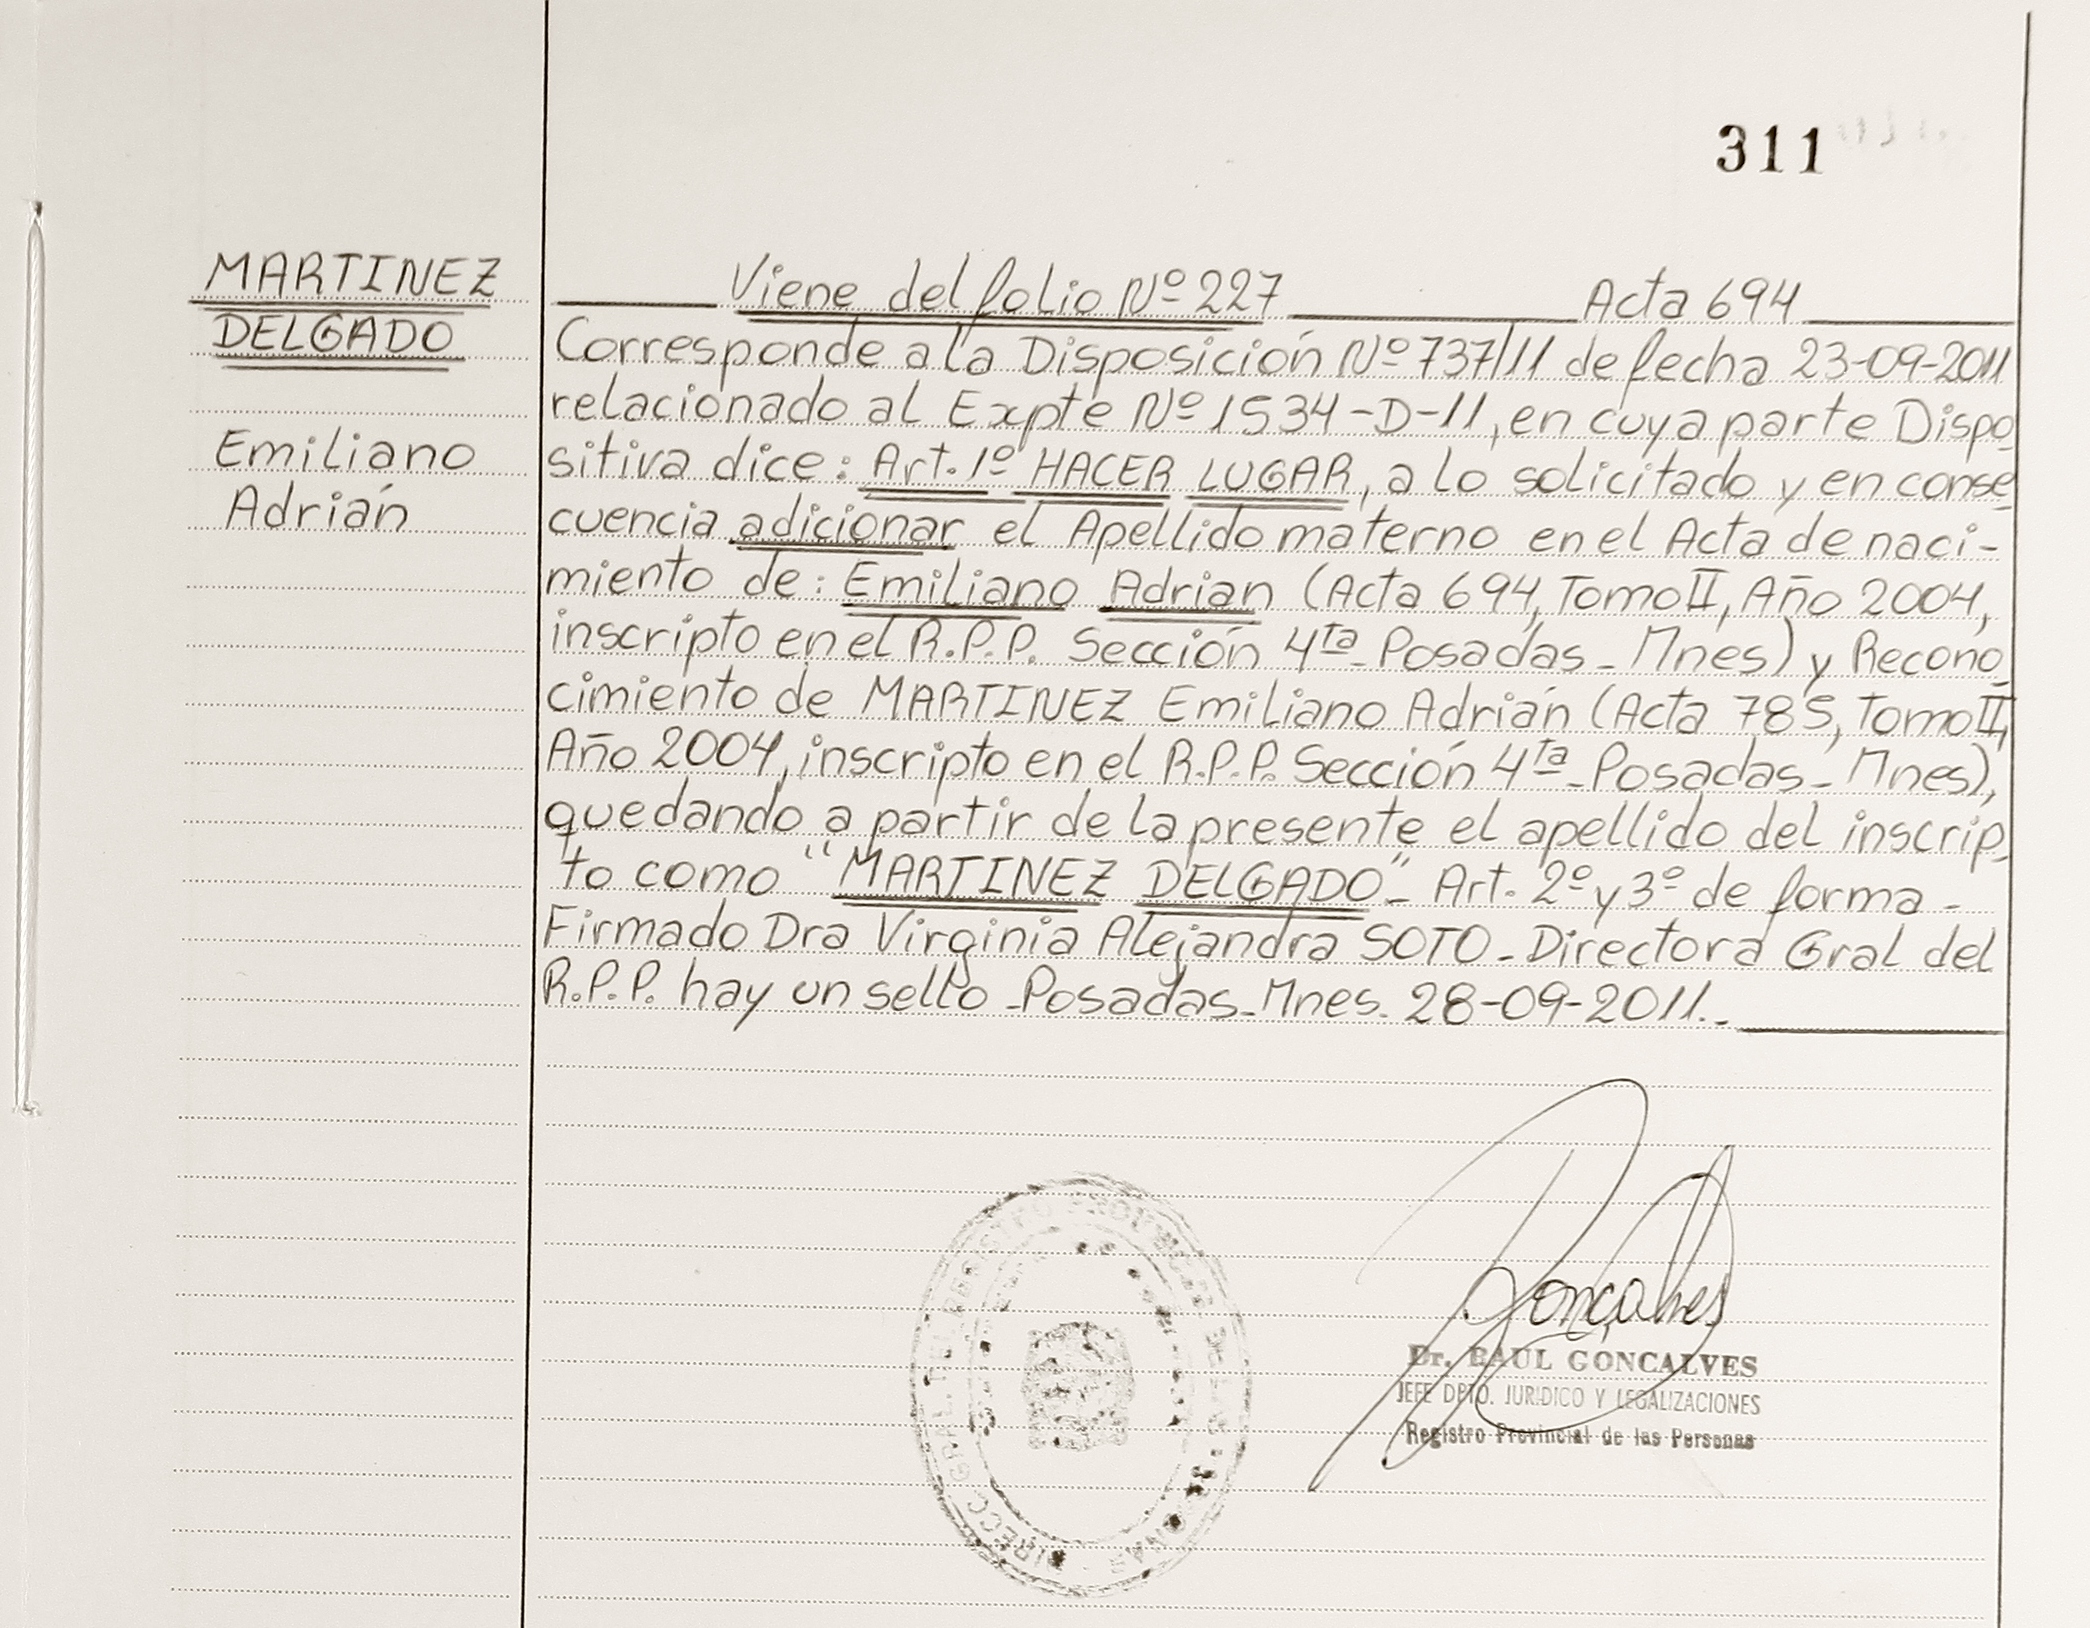 311
MARTINEZ
DELGADO
Emiliano
Adrián
Viene del folio Nº 227 Acta 694
Corresponde a la Disposición Nº 737/11 de fecha 23-09-2011
relacionado al Expte Nº 1534-D-11, en cuya parte Dispo
sitiva dice: Art. 1º HACER LUGAR, a lo solicitado y en conse
cuencia adicionar el Apellido materno en el Acta de naci-
miento de: Emiliano Adrian (Acta 694, Tomo II, Año 2004,
inscripto en el R.P.P. Sección 4ta - Posadas - Mnes) y Recono
cimiento de MARTINEZ Emiliano Adrián (Acta 785, Tomo II,
Año 2004, inscripto en el R.P.P. Sección 4ta - Posadas - Mnes),
quedando a partir de la presente el apellido del inscrip
to como "MARTINEZ DELGADO"- Art. 2º y 3º de forma -
Firmado Dra Virginia Alejandra SOTO - Directora Gral del
R.P.P. hay un sello - Posadas - Mnes. 28-09-2011.-
Gonçalves
Dr. RAUL GONCALVES
JEFE DPTO. JURIDICO Y LEGALIZACIONES
Registro Provincial de las Personas
DIRECC. GRAL. DEL REGISTRO PROVINCIAL DE LAS PERSONAS